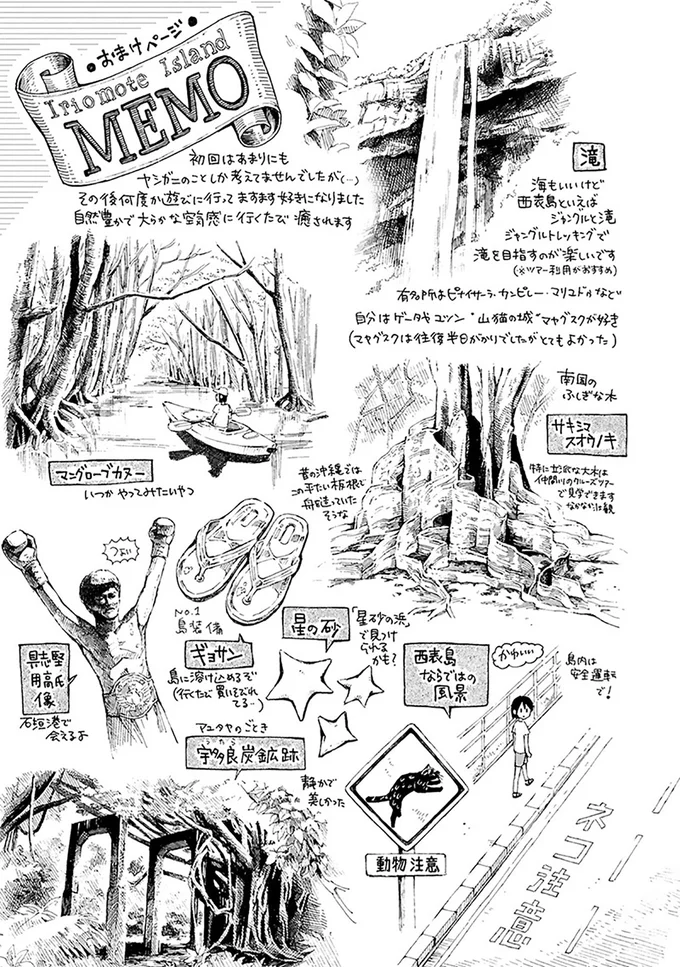 おまけページ
Iriomote Island
MEMO
初回はあまりにも
ヤシガニのことしか考えてませんでしたが(…)
その後何度か遊びに行ってますます好きになりました
自然豊かで大らかな空気感に行くたび癒されます
滝
海もいいけど
西表島といえば
ジャングルと滝
ジャングルトレッキングで
滝を目指すのが楽しいです
(※ツアー利用がおすすめ)
有名所はピナイサーラ・カンピレー・マリユドゥなど
自分はゲータやユツン "山猫の城"マヤグスクが好き
(マヤグスクは往復半日がかりでしたがとてもよかった)
マングローブカヌー
いつかやってみたいやつ
南国の
ふしぎな木
サキシマ
スオウノキ
特に立派な大木は
仲間川のクルーズツアー
で見学できます
なかなかの壮観
昔の沖縄では
この平たい板根で
舟を造っていた
そうな
つよい
具志堅
用高氏
像
石垣港で
会えるよ
No.1
島装備
ギョサン
島に溶け込めるぞ
(行くたび買いそびれ
てる…)
星の砂
「星砂の浜」
で見つけ
られる
かも?
西表島
ならではの
風景
かわいい
島内は
安全運転
で!
アユタヤのごとき
うたら
宇多良炭鉱跡
静かで
美しかった
動物注意
ネコ注意